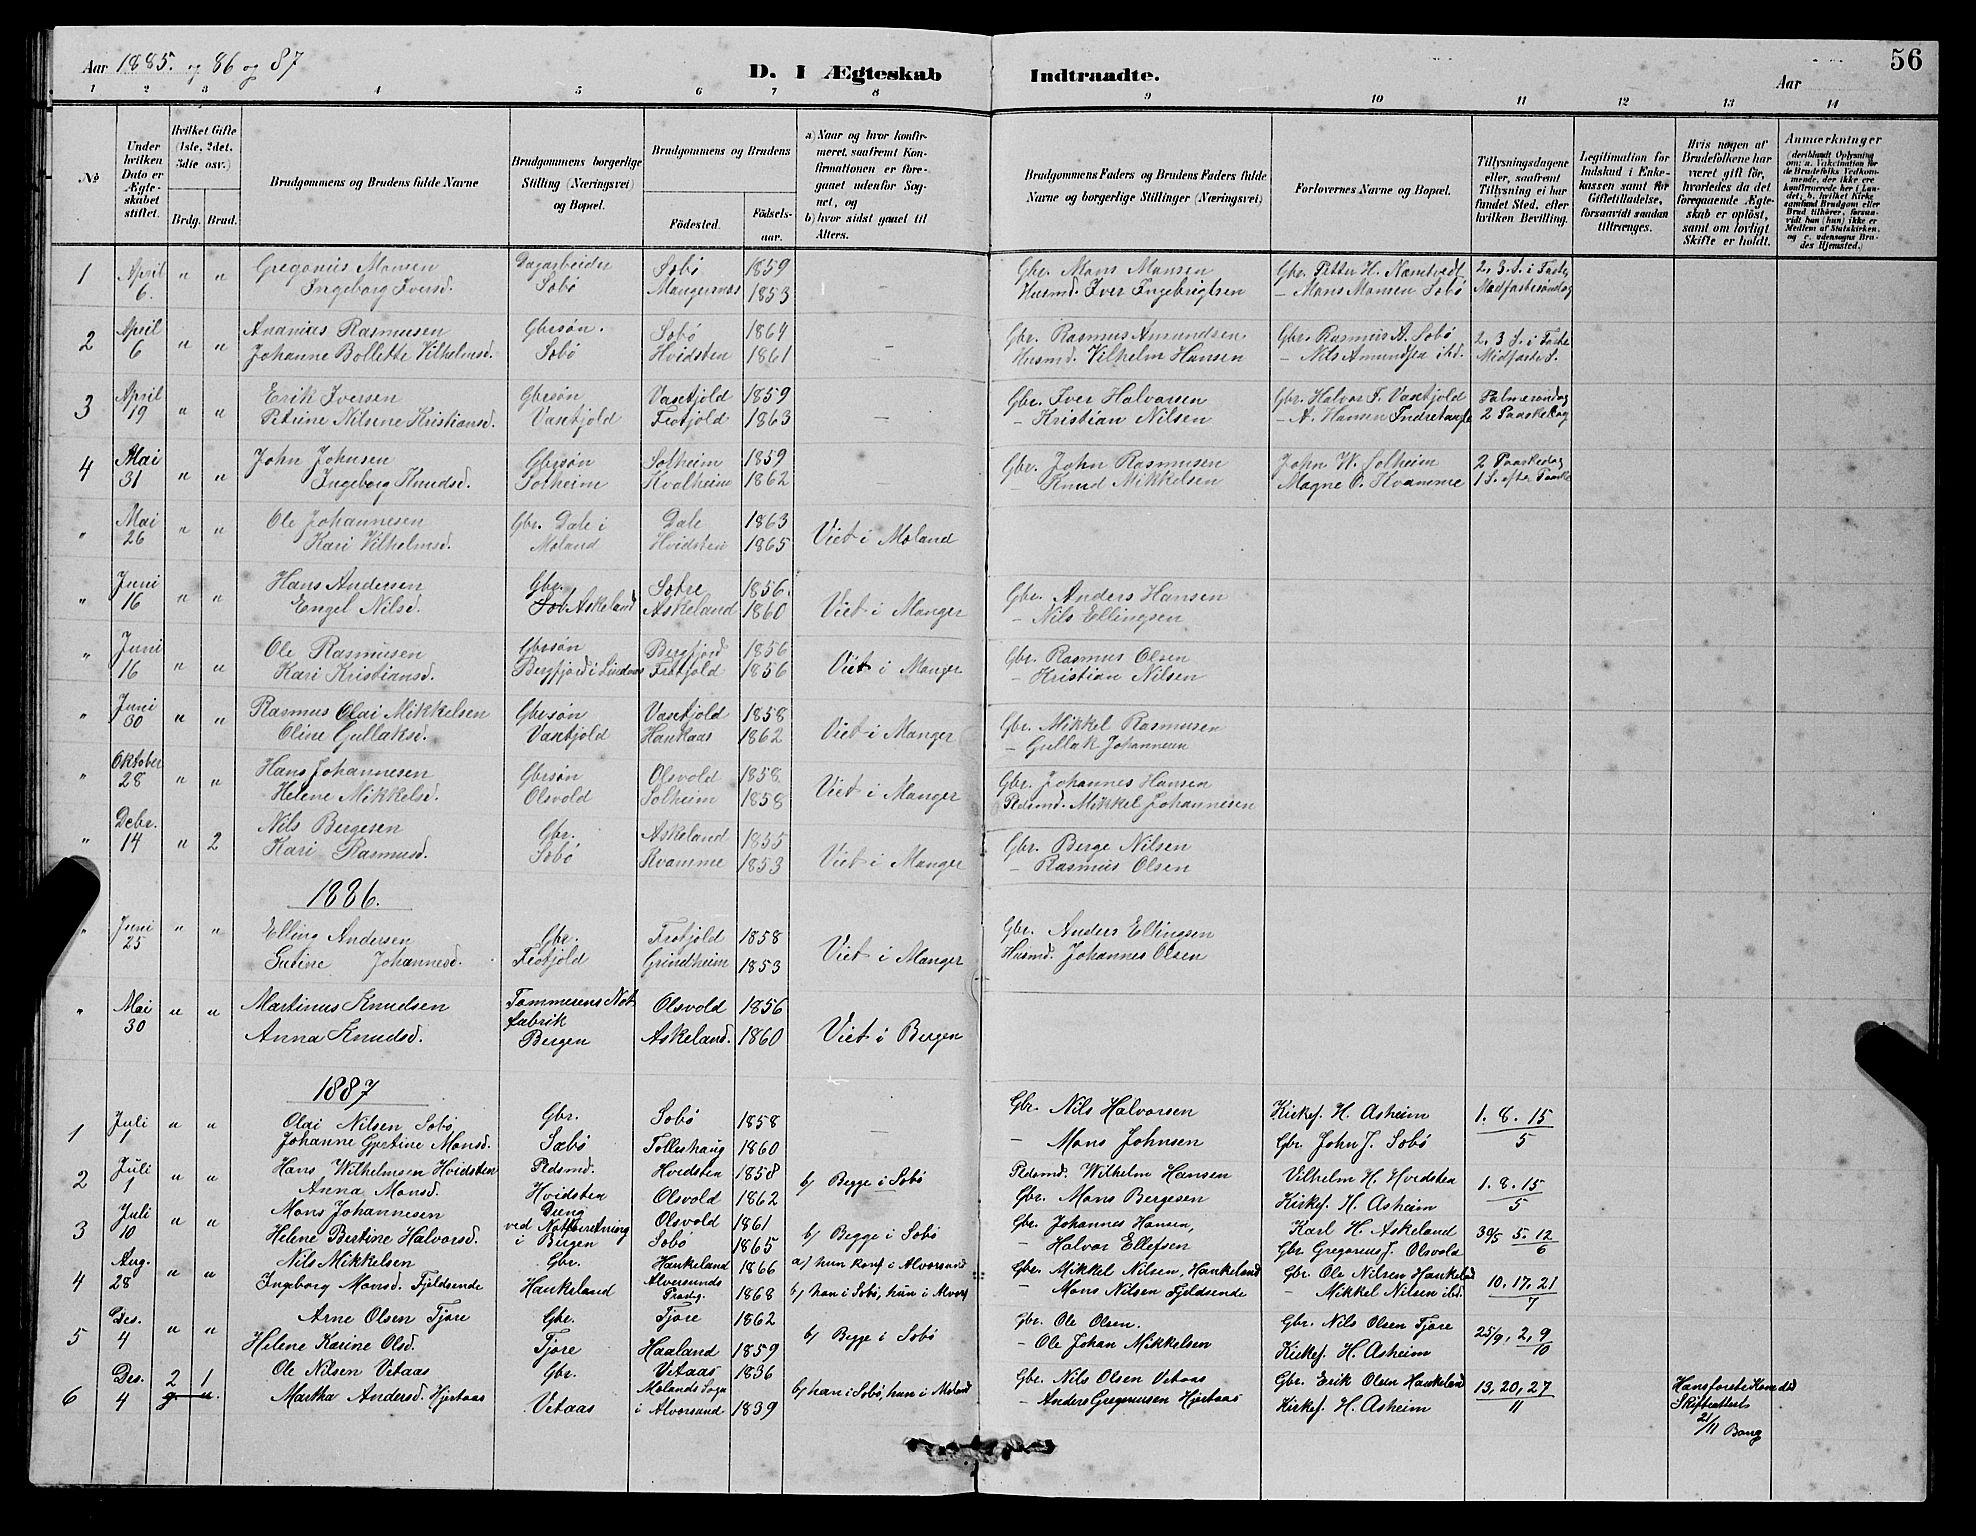 Aar 1885. og 86 og 87
D. I Ægteskab Indtraadte.
Aar
56
1 2 3 4 5 6 7 8 9 10 11 12 13 14
No
Under hvilken Dato er Ægteskabet stiftet.
Hvilket Gifte (1ste, 2det, 3die osv.)
Brdg. Brud.
Brudgommens og Brudens fulde Navne
Brudgommens borgerlige Stilling (Næringsvei) og Bopæl.
Brudgommens og Brudens
Fødested.
Fødselsaar.
a) Naar og hvor konfirmeret, saafremt Konfirmationen er foregaaet udenfor Sognet, og
b) hvor sidst gaaet til Alters.
Brudgommens Faders og Brudens Faders fulde Navne og borgerlige Stillinger (Næringsvei)
Forlovernes Navne og Bopæl.
Tillysningsdagene eller, saafremt Tillysning ei har fundet Sted, efter hvilken Bevilling.
Legitimation for Indskud i Enkekassen samt for Giftetilladelse, forsaavidt saadan tiltrænges.
Hvis nogen af Brudefolkene har været gift før, hvorledes da det foregaaende Ægteskab er opløst, samt om lovligt Skifte er holdt.
Anmærkninger (deriblandt Oplysning om: a. Vakcination for de Brudefolks Vedkommende, der ikke ere konfirmerede her i Landet, b. hvilket Kirkesamfund Brudgom eller Brud tilhører, forsaavidt han (hun) ikke er Medlem af Statskirken, og c. udensogns Brudes Hjemsted.)
1 April 6. " " Gregorius Monsen Dagarbeider Sobø 1859 Gbr. Mons Monsen Gbr. Petter H. Namtvedt 2, 3. S. i Faste
Ingeborg Iversd. Sobø Mangersnes 1853 - Husmd. Iver Ingebrigtsen - Mons Monsen Sobø Midfastesøndag
2 April 6 " " Ananias Rasmusen Gbrsøn. Sobø 1864 Gbr. Rasmus Amundsen Gbr. Rasmus A. Sobø 2, 3 S. i Faste
Johanne Bollette Vilhelmsd. Sobø Hvidsten 1861 - Husmd. Vilhelm Hansen - Nils Amundsen ibd. Midfaste S.
3 April 19 " " Erik Iversen Gbrsøn Vasetjold 1859 Gbr. Iver Halvorsen Gbr. Halvor I. Vasetjold Palmesøndag
Petrine Nilsine Kristiansd. Vasetjold Frotjold 1863 - - Kristian Nilsen - A. Hansen 2 Paaskedag
4 Mai 31 " " John Johnsen Gbrsøn Solheim 1859 Gbr. John Rasmusen John W. Solheim 2 Paaskedag
Ingeborg Knudsd. Solheim Kvalheim 1862 - - Knud Mikkelsen Magne O. Kvamme 1 S. efter Paaske
" Mai 26 " " Ole Johannesen Gbr. Dale i Dale 1863
Kari Vilhelmsd. Moland Hvidsten 1865 Viet i Moland
" Juni 16 " " Hans Andersen Gbr. Sobre 1856. Gbr. Anders Hansen
Engel Nilsd. Askeland Askeland 1860 Viet i Manger - Nils Ellingsen
" Juni 16 " " Ole Rasmusen Gbrsøn Bergfjord 1856 Gbr. Rasmus Olsen
Kari Kristiansd. Bergfjord i Lindaas Frotjold 1856 Viet i Manger - Kristian Nilsen
" Juni 30 " " Rasmus Olai Mikkelsen Gbrsøn Vasetjold 1858 Gbr. Mikkel Rasmusen
Oline Gullaksd. Vasetjold Haukaas 1862 Viet i Manger - Gullak Johannesen
" Oktober 28 " " Hans Johannesen Gbrsøn Olsvold 1858 Gbr. Johannes Hansen
Helene Mikkelsd. Olsvold Solheim 1858 Viet i Manger Pldsmd. Mikkel Johannesen
" Debr. 14 " 2 Nils Bergesen Gbr. Askeland 1855 Gbr. Berge Nilsen
Kari Rasmusd. Sobø Kvamme 1853 Viet i Manger - Rasmus Olsen
1886.
" Juni 25 " " Elling Andersen Gbr. Frotjold 1858 Gbr. Anders Ellingsen
Johannesd. Frotjold Grindheim 1853 Viet i Manger Husmd. Johannes Olsen
" Mai 30 " " Martinus Knudsen Tommerens Not Olsvold 1856
fabrik
Anna Knudsd. Bergen Askeland. 1860 Viet i Bergen
1887
1 Juli 1 " " Olai Nilsen Sobø Gbr. Sobø 1858 Gbr. Nils Halvorsen Kirkesg. H. Asheim 1. 8. 15
Johanne Gjertine Monsd. Sæbø Tolleshaug 1860 - - Mons Johnsen Gbr. John J. Sobø 5
2 Juli 1 " " Hans Wilhelmsen Hvidsten Pldsmd. Hvidsten 1858 b) Begge i Sobø Pldsmd. Wilhelm Hansen Vilhelm H. Hvidsten 1. 8. 15
Anna Monsd. Hvidsten Olsvold 1862 Gbr. Mons Bergesen Kirkesg. H. Asheim 5
3 Juli 10 " " Mons Johannesen Dreng Olsvold 1861 b) Begge i Sobø Gbr. Johannes Hansen, Karl H. Askeland 30/5 5. 12
Helene Bertine Halvorsd. ved Notforretning i Bergen Sobø 1865 - Halvor Ellefsen Gbr. Gregorius J. Olsvold 6
4 Aug. 28 " " Nils Mikkelsen Gbr. Haukeland 1866 a) hun konf i Alversund Gbr. Mikkel Nilsen, Haukeland Gbr. Ole Nilsen Haukeland 10. 17. 21
Ingeborg Monsd. Fjeldsende Haukeland Alversunds Prædg. 1868 b) han i Sobø, hun i Alvers - Mons Nilsen Fjeldsende - Mikkel Nilsen ibd. 7
5 Des. 4 " " Arne Olsen Tjore Gbr. Tjore 1862 b) Begge i Sobø Gbr. Ole Olsen. Gbr. Nils Olsen Tjore 25/9, 2, 9
Helene Karine Olsd. Tjore Haaland 1859 - Ole Johan Mikkelsen Kirkesg. H. Asheim 10
6 Des. 4 2 1 Ole Nilsen Vetaas Gbr. Vetaas 1836 b) han i Sobø, hun i Moland Gbr. Nils Olsen Vetaas Gbr. Erik Olsen Haukeland 13, 20, 27
Martha Andersd. Hjertaas Vetaas Molands Sogn i Alversund 1839 - Anders Gregoriusen Hjertaas Kirkesg. H. Asheim 11
Hans første Kone død
Skifteattest
21/11 Bong